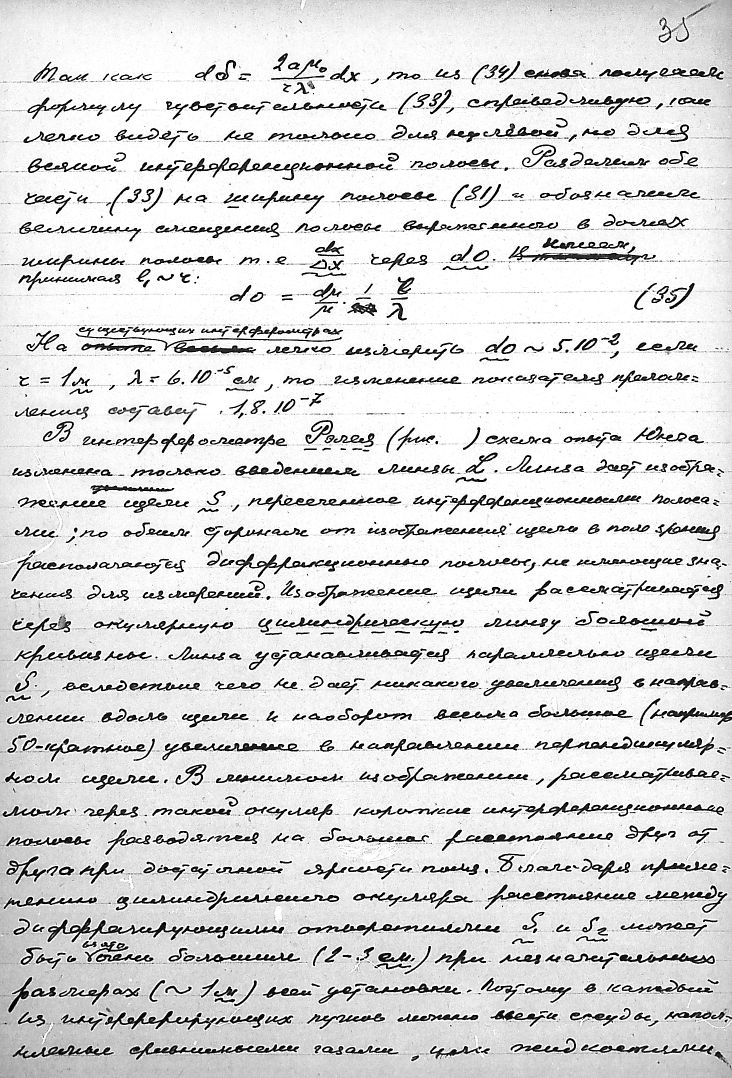 35
Так как dδ = 2aμ₀/rλ dx, то из (34) снова получаем
формулу чувствительности (33), справедливую, как
легко видеть не только для нулевой, но для
всякой интерференционной полосы. Разделим обе
части (33) на ширину полосы (31) и обозначим
величину смещения полосы выраженного в долях
ширины полосы т.е dx/Δx через dO. Имеем,
принимая l₁ ~ r:
dO = dμ/μ · 1/ · r/λ (35)
существующих интерферометрах
На опыте весьма легко измерить dO ~ 5.10⁻², если
r = 1м, λ = 6.10⁻⁵ см, то изменение показателя прелом-
ления составит 1,8.10⁻⁷
В интерферометре Рэлея (рис. ) схема опыта Юнга
изменена только введением линзы L. Линза дает изобра-
жение щели S, пересеченное интерференционными полоса-
ми; по обеим сторонам от изображения щели в поле зрения
располагаются диффракционные полосы, не имеющие зна-
чения для измерений. Изображение щели рассматривается
через окулярную цилиндрическую линзу большой
кривизны. Линза устанавливается параллельно щели
S, вследствие чего не дает никакого увеличения в направ-
лении вдоль щели и наоборот весьма большое (например
50-кратное) увеличение в направлении перпендикуляр-
ном щели. В мнимом изображении, рассматривае-
мом через такой окуляр короткие интерференционные
полосы разводятся на большое расстояние друг от
друга при достаточной яркости поля. Благодаря приме-
нению цилиндрического окуляра расстояние между
диффрагирующими отверстиями S₁ и S₂ может
быть очень большим (2-3 см.) при незначительных
размерах (~ 1м) всей установки. Поэтому в каждый
из интерферирующих пучков можно ввести сосуды, напол-
няемые сравниваемыми газами, или жидкостями.